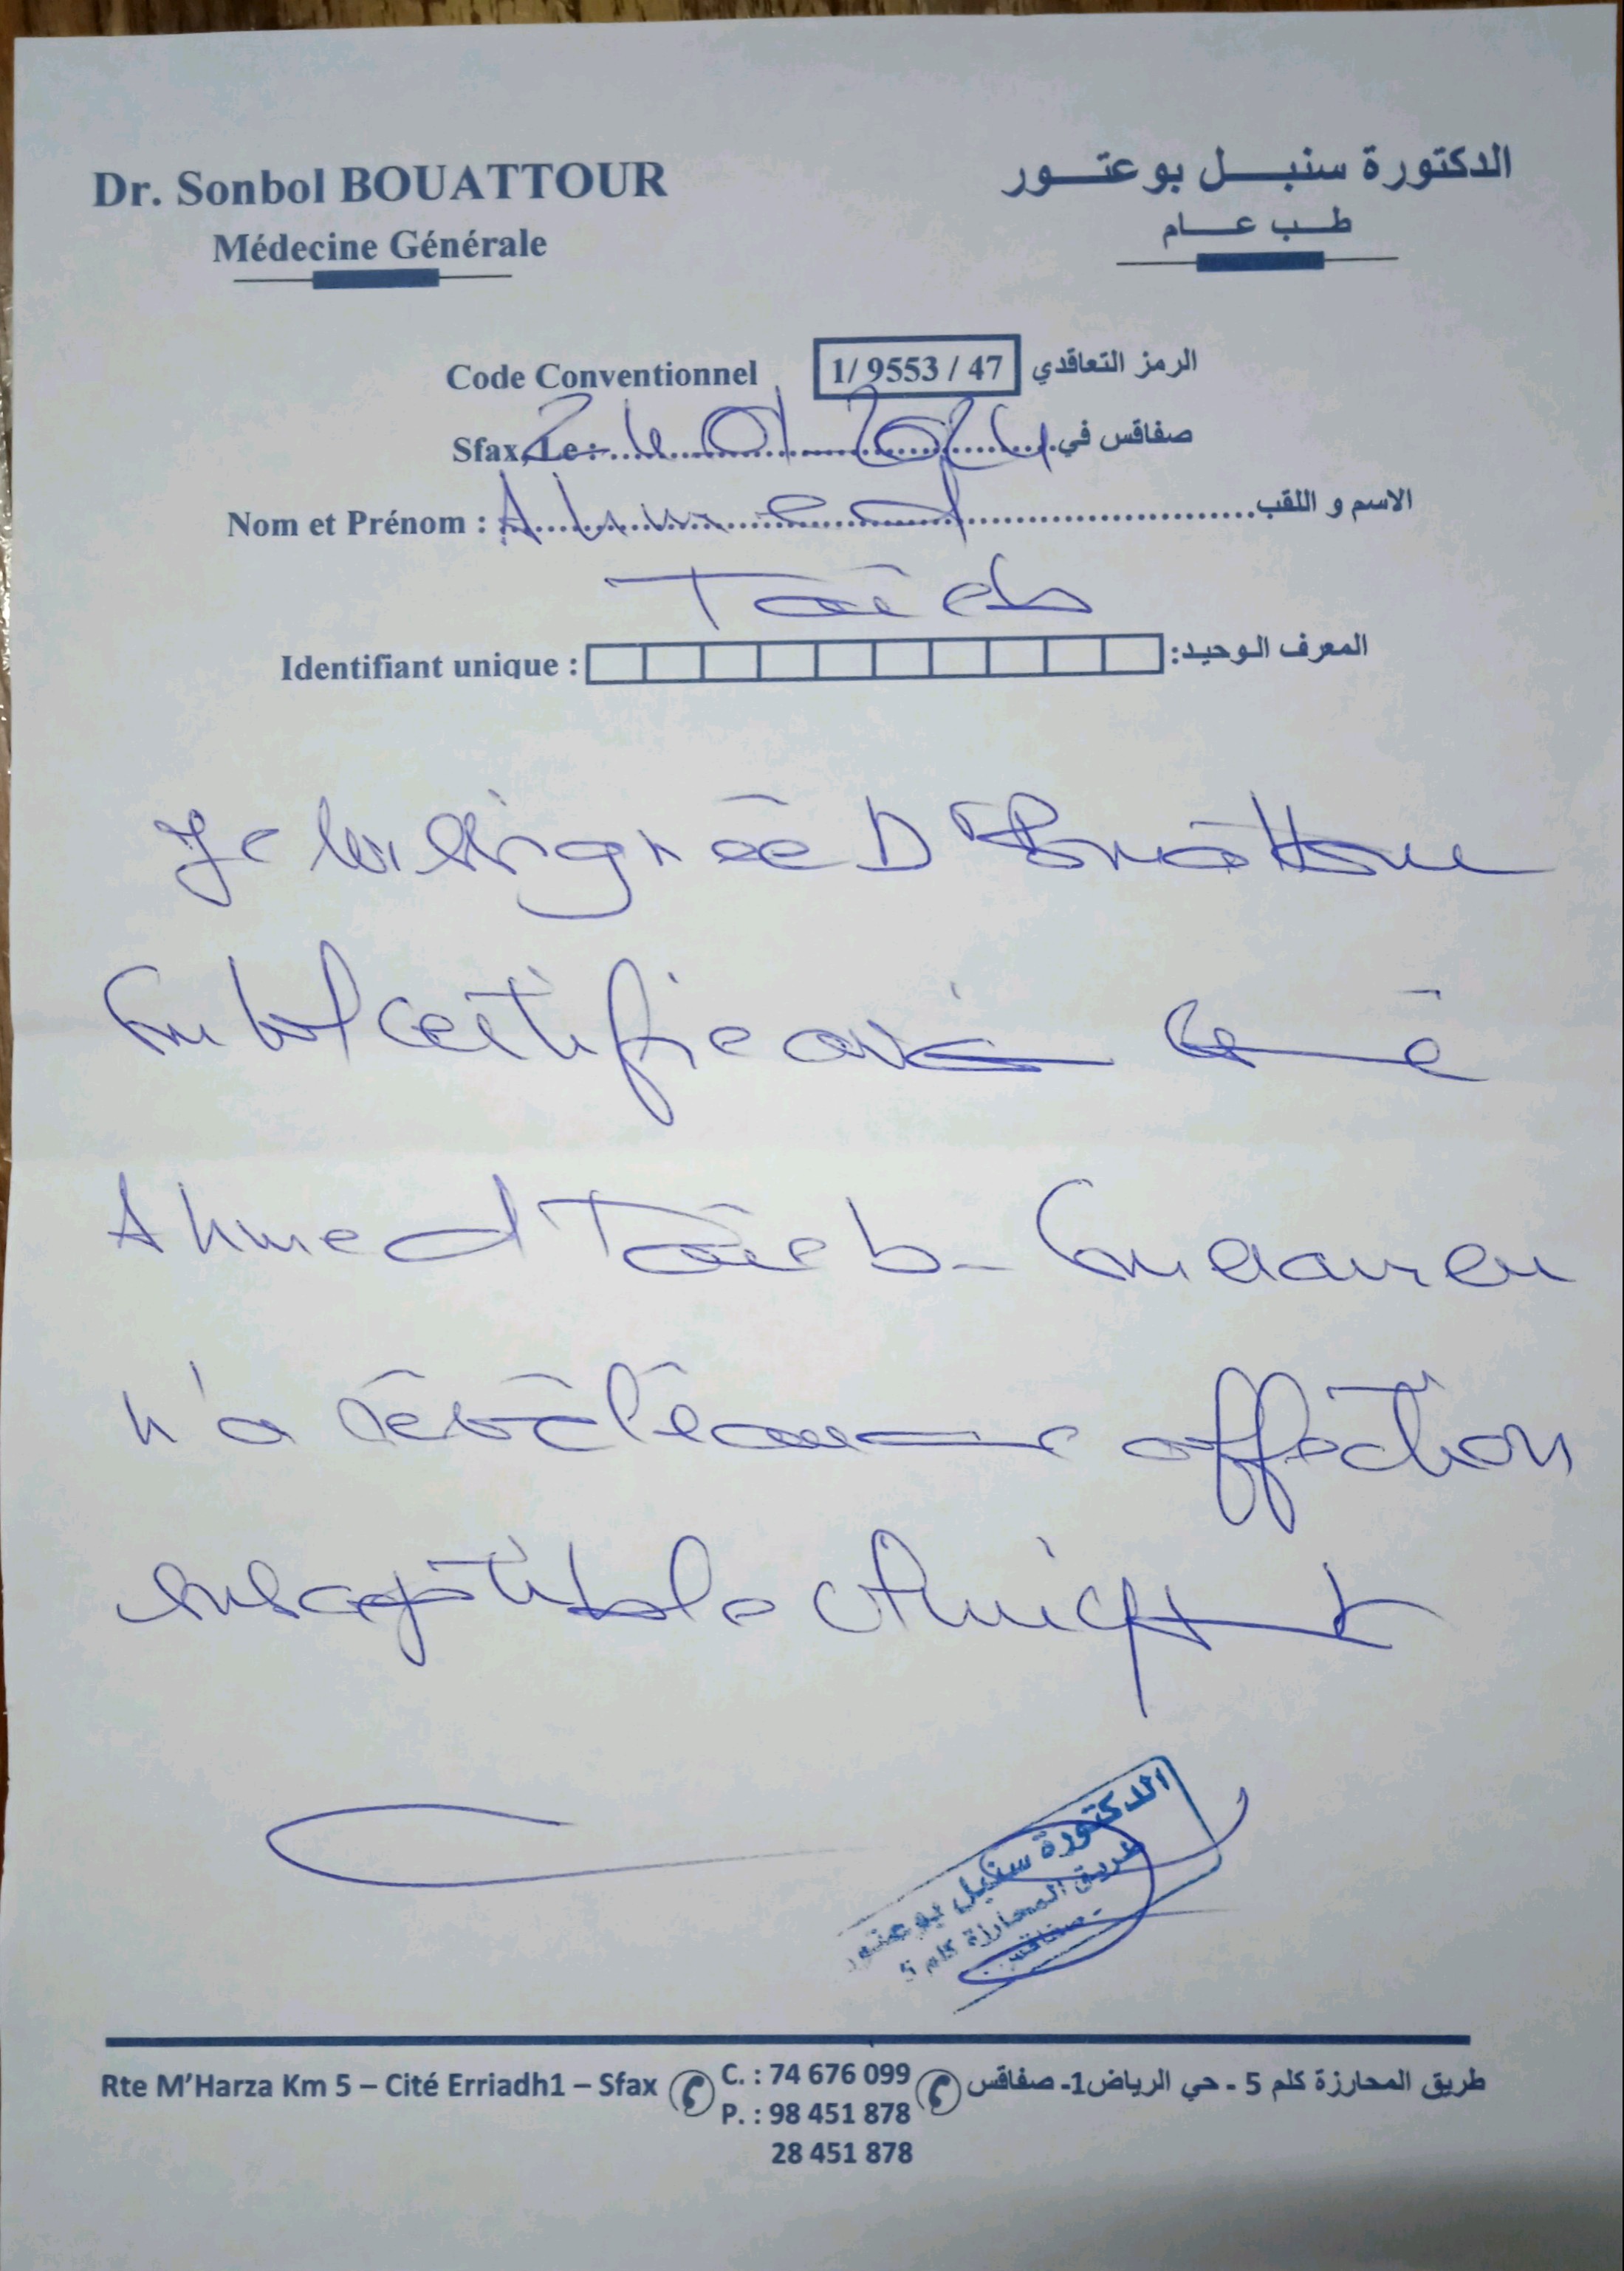 Dr. Sonbol BOUATTOUR
الدكتورة سنبل بوعتور
Médecine Générale
طب عام
Code Conventionnel 1/ 9553 / 47 الرمز التعاقدي
Sfax, Le : 24 01 2024 صفاقس في
Nom et Prénom : Ahmed الاسم و اللقب
Taieb
Identifiant unique : المعرف الوحيد:
Je soussignée Dr Bouattour
Sonbol certifie avoir
Ahmed Taieb. Son examen
n'a révélé aucune affection
susceptible
الدكتورة سنبل بوعتور
طريق المحارزة كلم 5
- صفاقس -
Rte M'Harza Km 5 – Cité Erriadh1 – Sfax C. : 74 676 099 طريق المحارزة كلم 5 - حي الرياض1- صفاقس
P. : 98 451 878
28 451 878